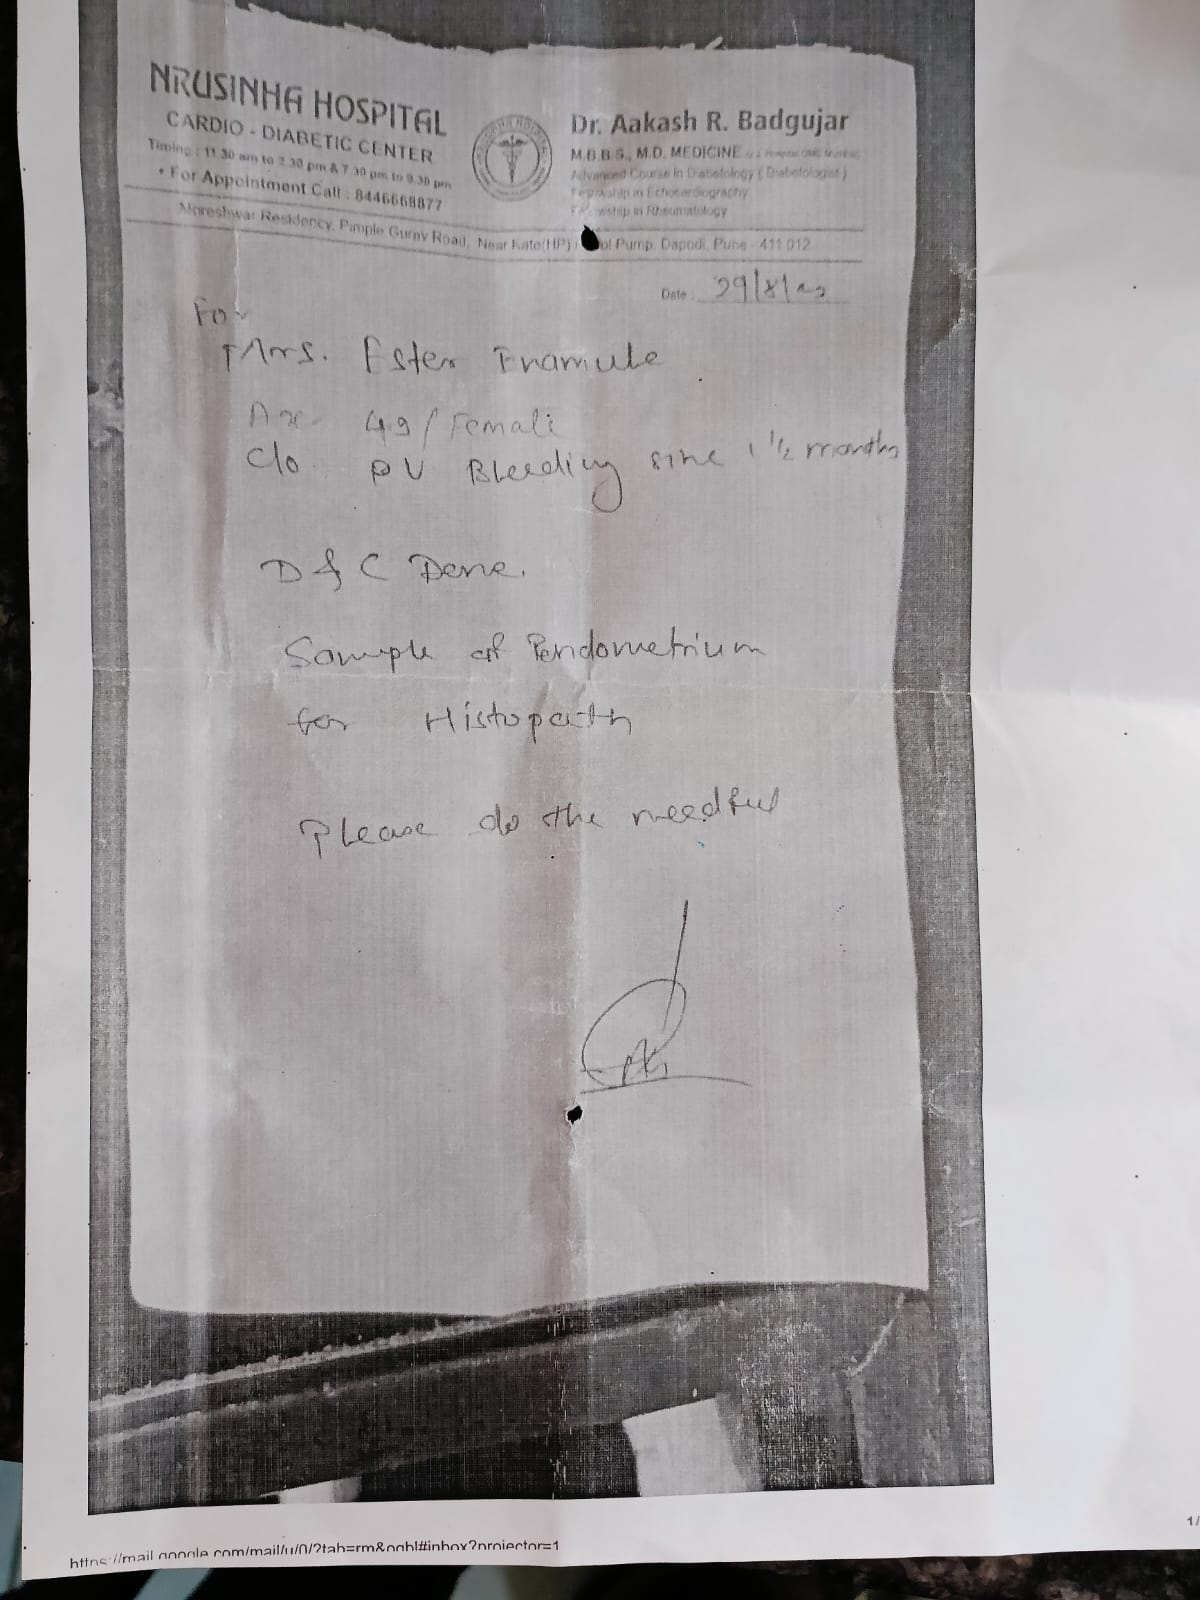 NRUSINHA HOSPITAL
CARDIO - DIABETIC CENTER
Timing : 11.30 am to 2.30 pm & 7.30 pm to 9.30 pm
• For Appointment Call : 8446668877
Dr. Aakash R. Badgujar
M.B.B.S., M.D. MEDICINE
Advanced Course in Diabetology ( Diabetologist )
Fellowship in Echocardiography
Fellowship in Rheumatology
Moreshwar Residency, Pimple Gurav Road, Near Kate(HP) ol Pump, Dapodi, Pune - 411 012
Date : 29/8/22
For
Mrs. Ester
49/Female
c/o PV Bleeding since 1 1/2 months
D & C Done.
Sample of Pendometrium
for Histopath
Please do the needful
https://mail.google.com/mail/u/0/?tab=rm&ogbl#inbox?projector=1
1/